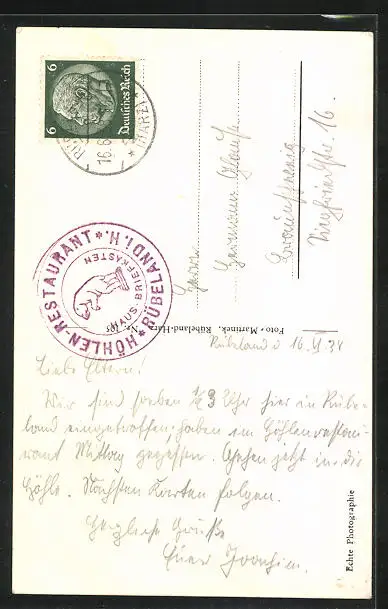 6 6
Deutsches Reich
16.6.
(HARZ)
HÖHLEN-RESTAURANT * RÜBELAND i. H. *
HAUS-BRIEFKASTEN
Herrn
Hermann
Braunschweig
16.
Foto-Martinek, Rübeland-Harz
Rübeland d. 16. VI. 34
Liebe Eltern!
Wir sind soeben ½3 Uhr hier in Rübe-
land eingetroffen, haben im Höhlenrestau-
rant Mittag gegessen. Gehen jetzt in die
Höhle. Nächsten Karten folgen.
Herzliche Grüße
Euer Joachim.
Echte Photographie